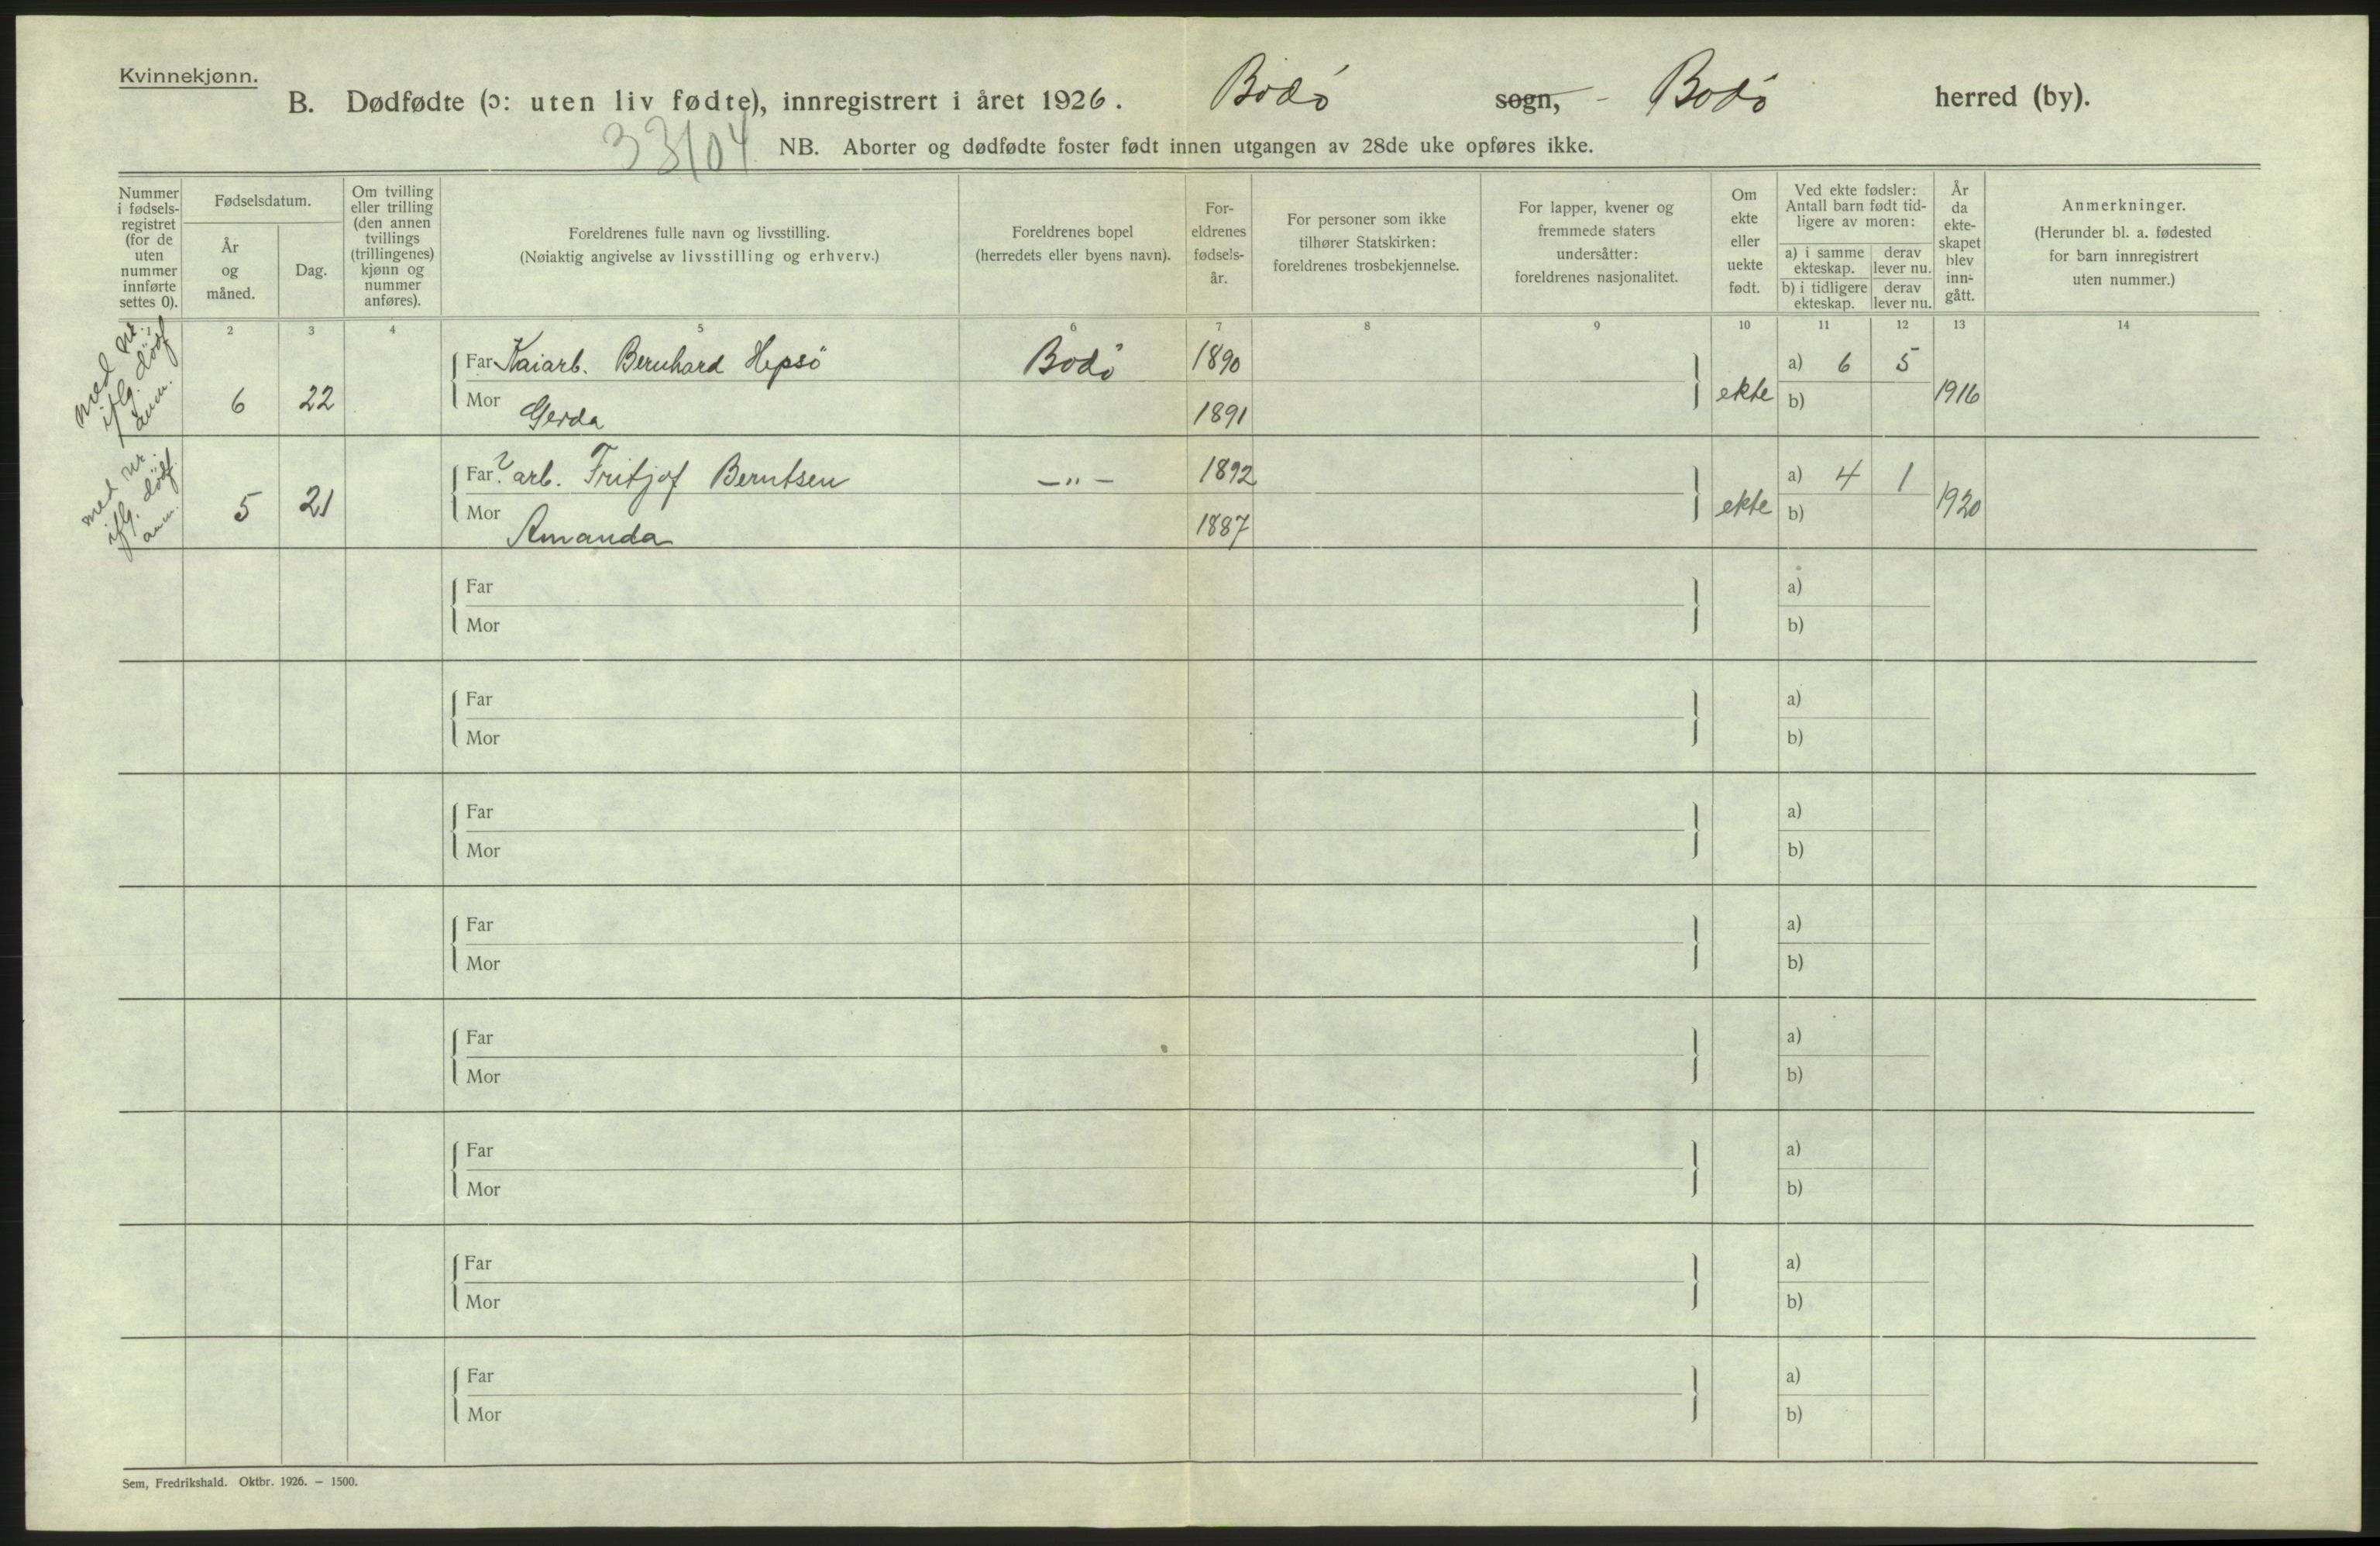 Kvinnekjønn.
B. Dødfødte (ɔ: uten liv fødte), innregistrert i året 1926. Bodø sogn, - Bodø herred (by).
33/04
NB. Aborter og dødfødte foster født innen utgangen av 28de uke opføres ikke.
Nummer
i fødsels-
registret
(for de
uten
nummer
innførte
settes 0).
Fødselsdatum.
År
og
måned.
Dag.
Om tvilling
eller trilling
(den annen
tvillings
(trillingenes)
kjønn og
nummer
anføres).
Foreldrenes fulle navn og livsstilling.
(Nøiaktig angivelse av livsstilling og erhverv.)
Foreldrenes bopel
(herredets eller byens navn).
For-
eldrenes
fødsels-
år.
For personer som ikke
tilhører Statskirken:
foreldrenes trosbekjennelse.
For lapper, kvener og
fremmede staters
undersåtter:
foreldrenes nasjonalitet.
Om
ekte
eller
uekte
født.
Ved ekte fødsler:
Antall barn født tid-
ligere av moren:
a) i samme
ekteskap.
derav
lever nu.
b) i tidligere
ekteskap.
derav
lever nu.
År
da
ekte-
skapet
blev
inn-
gått.
Anmerkninger.
(Herunder bl. a. fødested
for barn innregistrert
uten nummer.)
1 2 3 4 5 6 7 8 9 10 11 12 13 14
med nr.
iflg. dödf.
anm.
6 22
Far Kaiarb. Bernhard Hepsö Bodö 1890
Mor Gerda 1891
ekte
a) 6 5
b)
1916
med nr.
iflg. dödf.
anm.
5 21
Far ? arb. Fritjof Berntsen -"- 1892
Mor Amanda 1887
ekte
a) 4 1
b)
1920
Far a)
Mor b)
Far a)
Mor b)
Far a)
Mor b)
Far a)
Mor b)
Far a)
Mor b)
Far a)
Mor b)
Far a)
Mor b)
Far a)
Mor b)
Sem, Fredrikshald. Oktbr. 1926. — 1500.